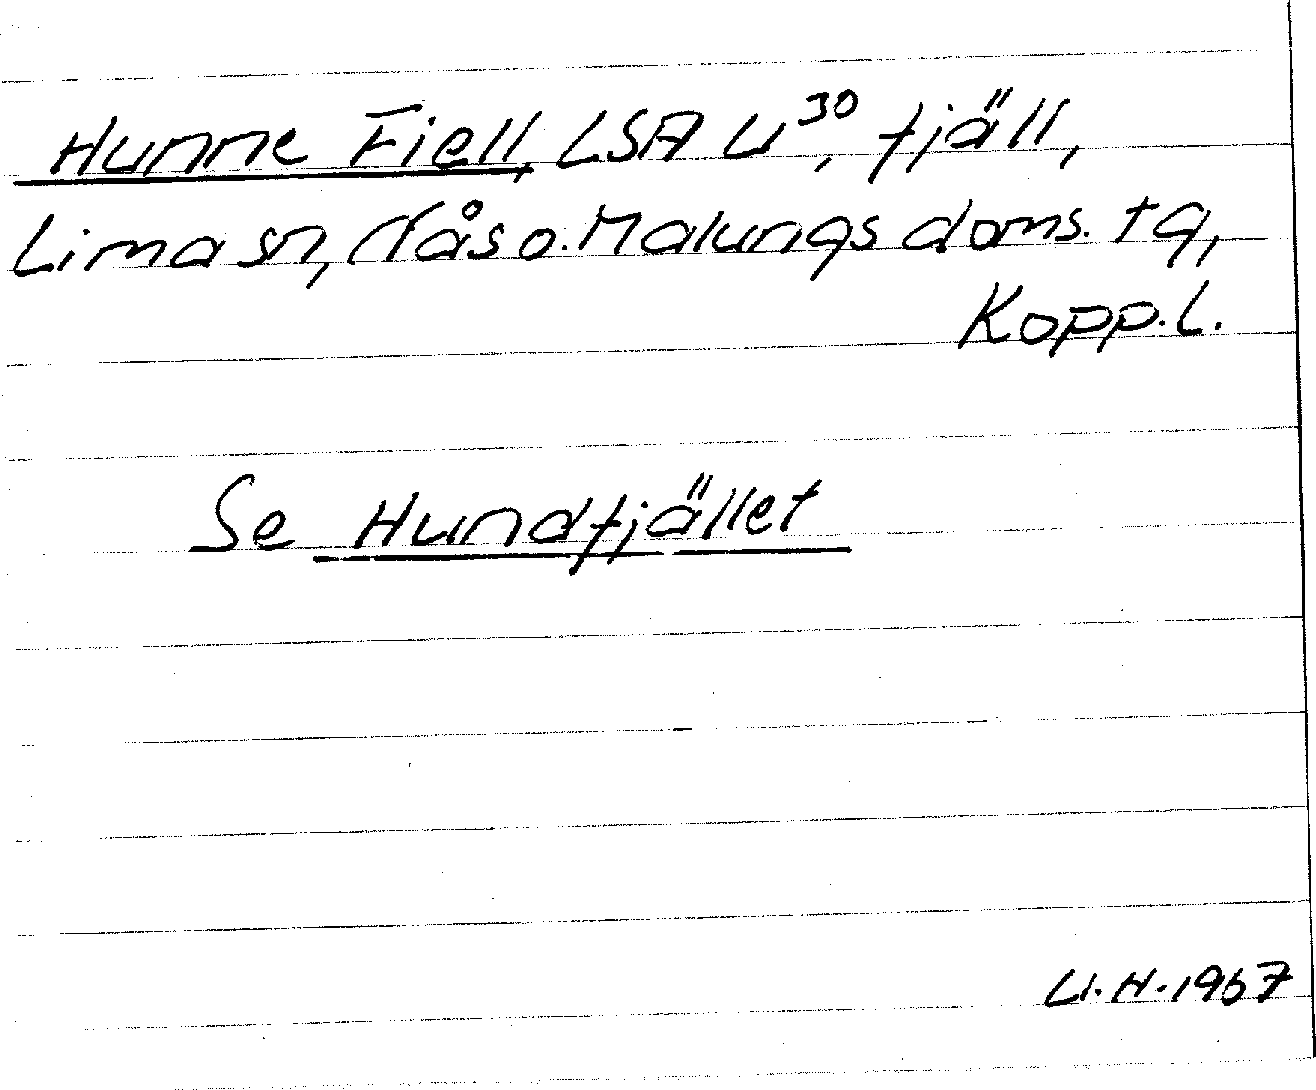 Hunne Fiell, LSA U³⁰, fjäll,
Lima sn, Nås o. Malungs doms. tg,
Kopp. l.
Se Hundfjället
U.H. 1967